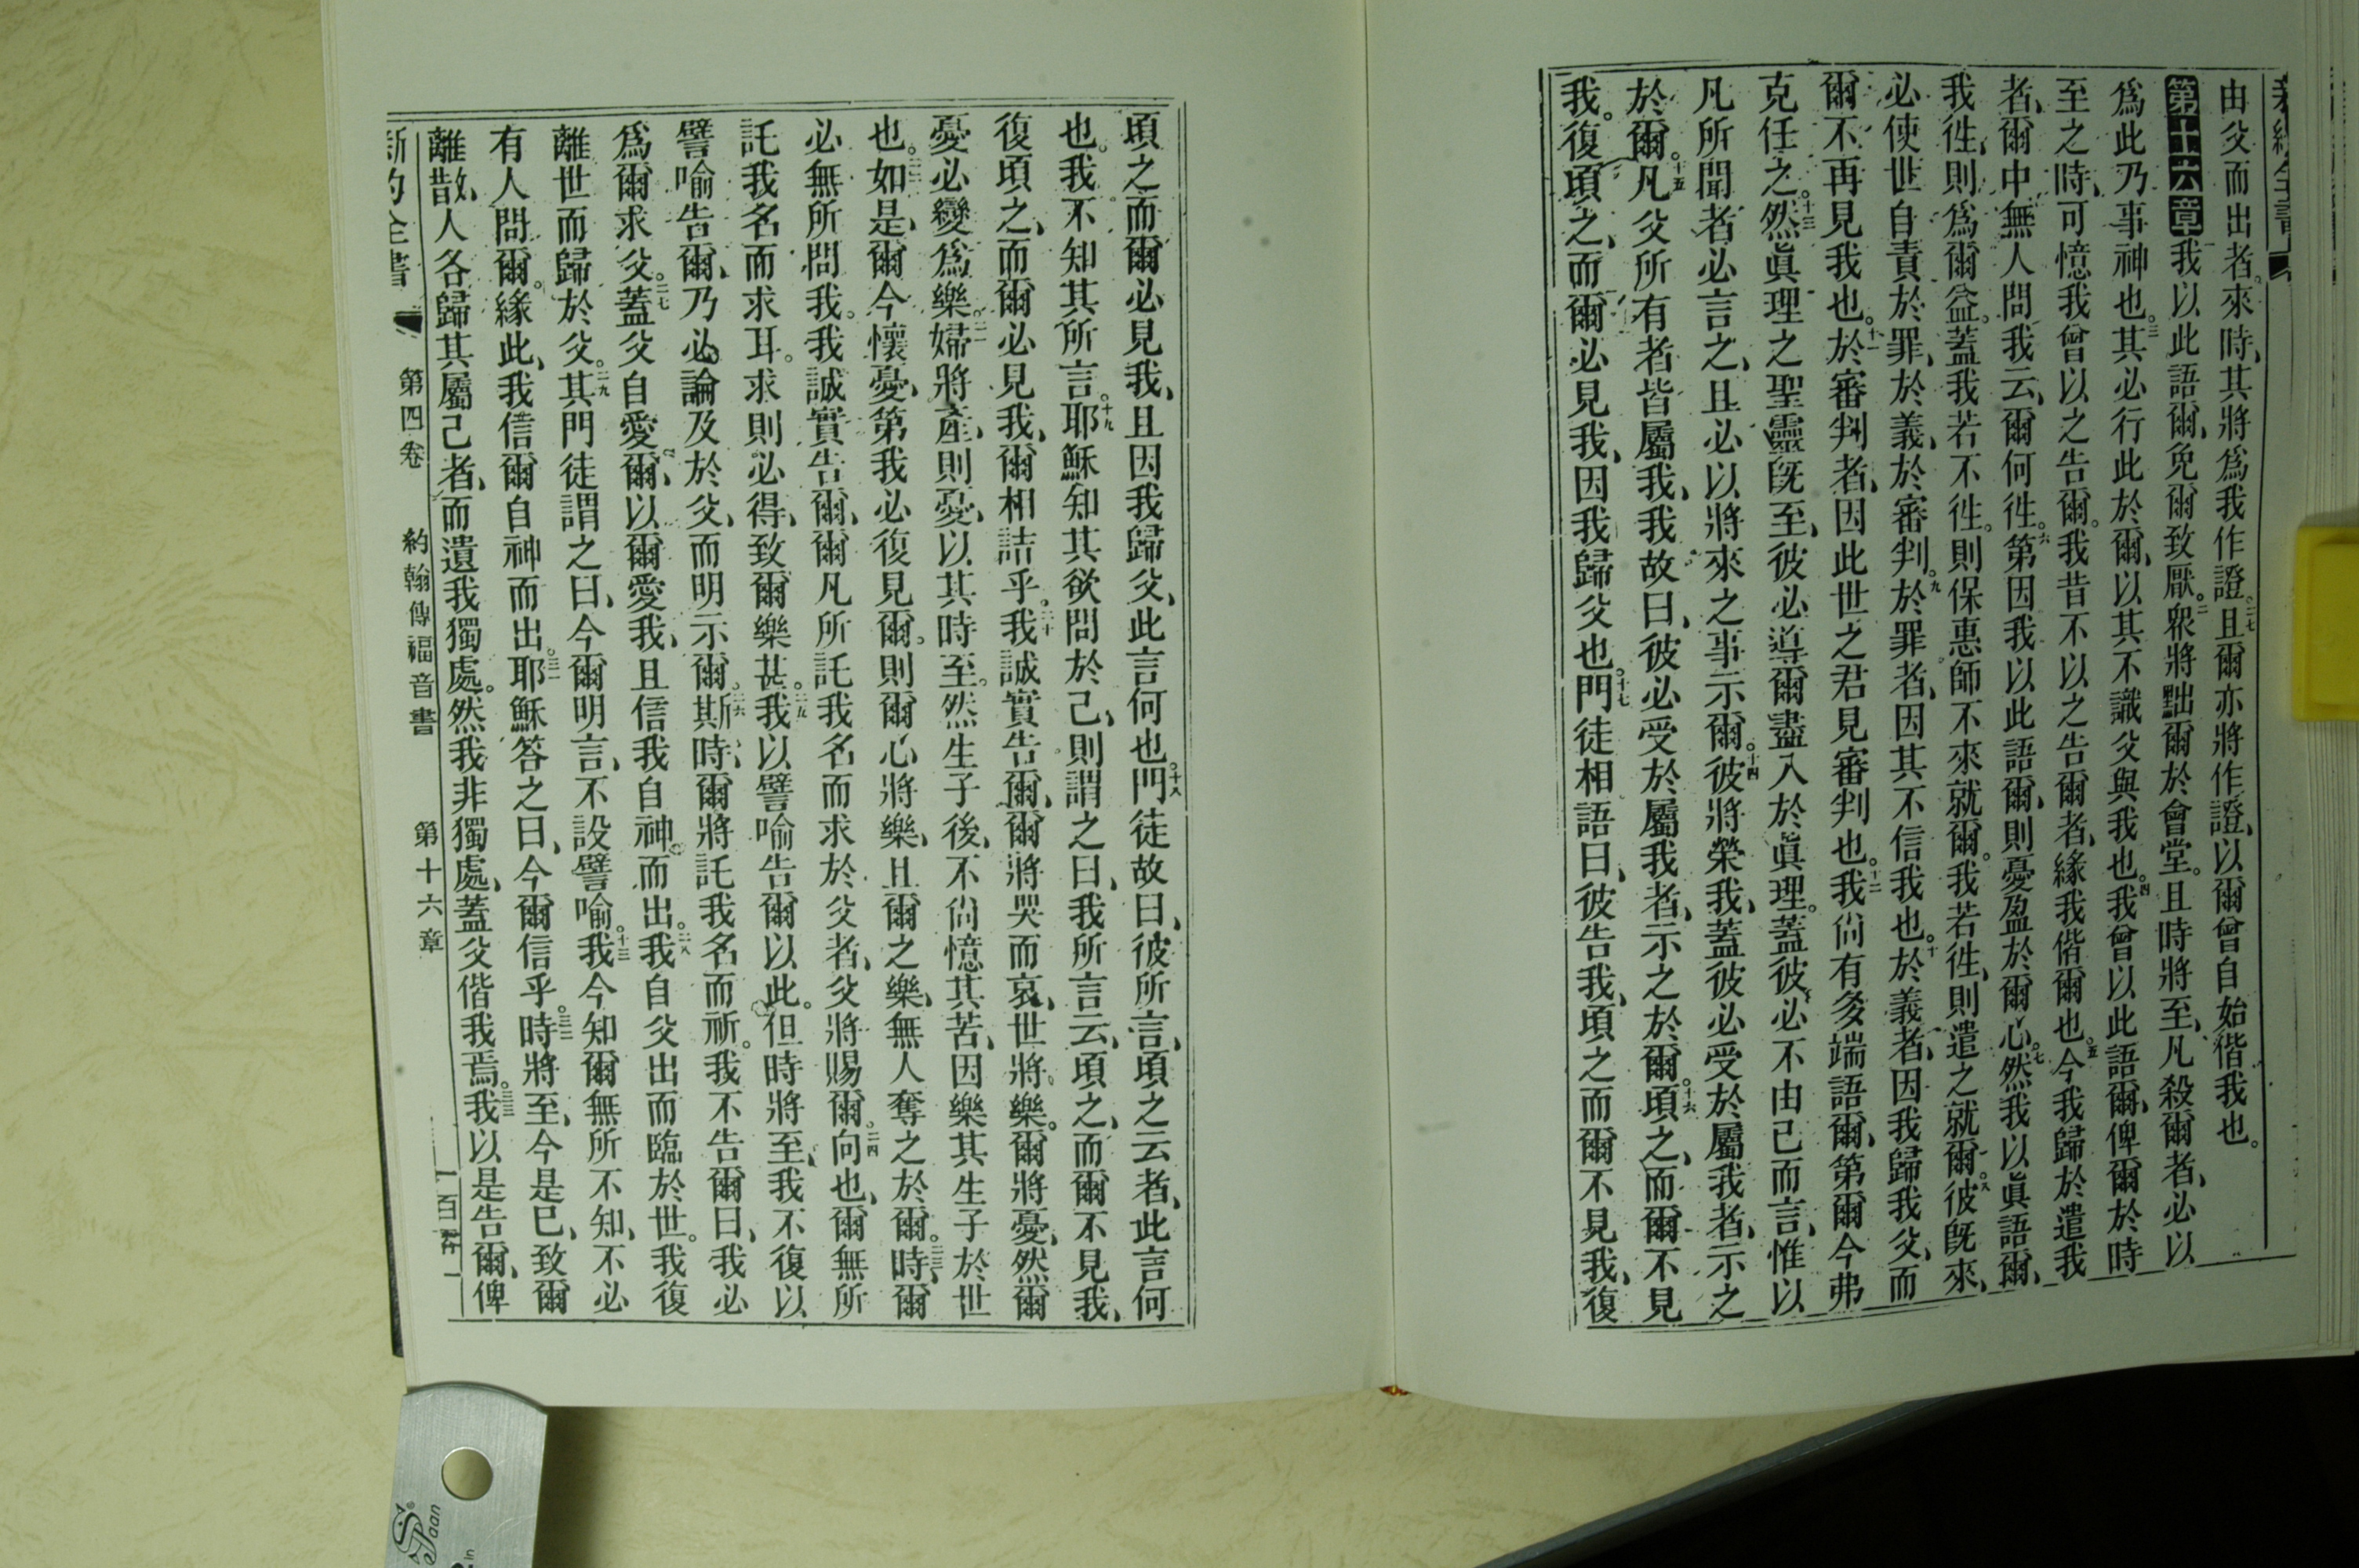 由父而出者。來時、其將爲我作證。二七且爾亦將作證、以爾曾自始偕我也。
第十六章我以此語爾、免爾致厭。二衆將黜爾於會堂。且時將至、凡殺爾者、必以
爲此乃事神也。三其必行此於爾、以其不識父與我也。四我曾以此語爾、俾爾於時
至之時、可憶我曾以之告爾。我昔不以之告爾者、緣我偕爾也。五今我歸於遣我
者、爾中無人問我云、爾何徃。六第因我以此語爾、則憂盈於爾心。七然我以眞語爾、
我徃、則爲爾益。蓋我若不徃。則保惠師不來就爾。我若徃、則遣之就爾。八彼旣來、
必使世自責於罪、於義、於審判。九於罪者、因其不信我也。十於義者、因我歸我父、而
爾不再見我也。十一於審判者、因此世之君見審判也。十二我尙有多端語爾、第爾今弗
克任之。十三然眞理之聖靈旣至、彼必導爾盡入於眞理。蓋彼必不由己而言、惟以
凡所聞者必言之、且必以將來之事示爾。十四彼將榮我、蓋彼必受於屬我者、示之
於爾。十五凡父所有者皆屬我、我故曰、彼必受於屬我者、示之於爾。十六頃之、而爾不見
我。復頃之、而爾必見我、因我歸父也。十七門徒相語曰、彼告我、頃之而爾不見我、復
頃之而爾必見我、且因我歸父、此言何也。十八門徒故曰、彼所言、頃之云者、此言何
也。我不知其所言。十九耶穌知其欲問於己、則謂之曰、我所言云、頃之、而爾不見我、
復頃之、而爾必見我、爾相詰乎。二十我誠實告爾、爾將哭而哀、世將樂。爾將憂、然爾
憂必變爲樂。二一婦將產、則憂、以其時至。然生子後、不尙憶其苦、因樂其生子於世
也。二二如是、爾今懷憂、第我必復見爾。則爾心將樂、且爾之樂、無人奪之於爾。二三時、爾
必無所問我。我誠實告爾、爾凡所託我名而求於父者、父將賜爾。二四向也、爾無所
託我名而求耳。求則必得、致爾樂甚。二五我以譬喻告爾以此。但時將至、我不復以
譬喻告爾、乃必論及於父、而明示爾。二六斯時、爾將託我名而祈。我不告爾曰、我必
爲爾求父。二七蓋父自愛爾、以爾愛我、且信我自神而出。二八我自父出而臨於世。我復
離世而歸於父。二九其門徒謂之曰、今爾明言、不設譬喻。三十我今知爾無所不知、不必
有人問爾。緣此、我信爾自神而出。三一耶穌答之曰、今爾信乎。三二時將至、今是已、致爾
離散、人各歸其屬己者、而遺我獨處。然我非獨處、蓋父偕我焉。三三我以是告爾、俾
新約全書 第四卷 約翰傳福音書 第十六章
Spaan